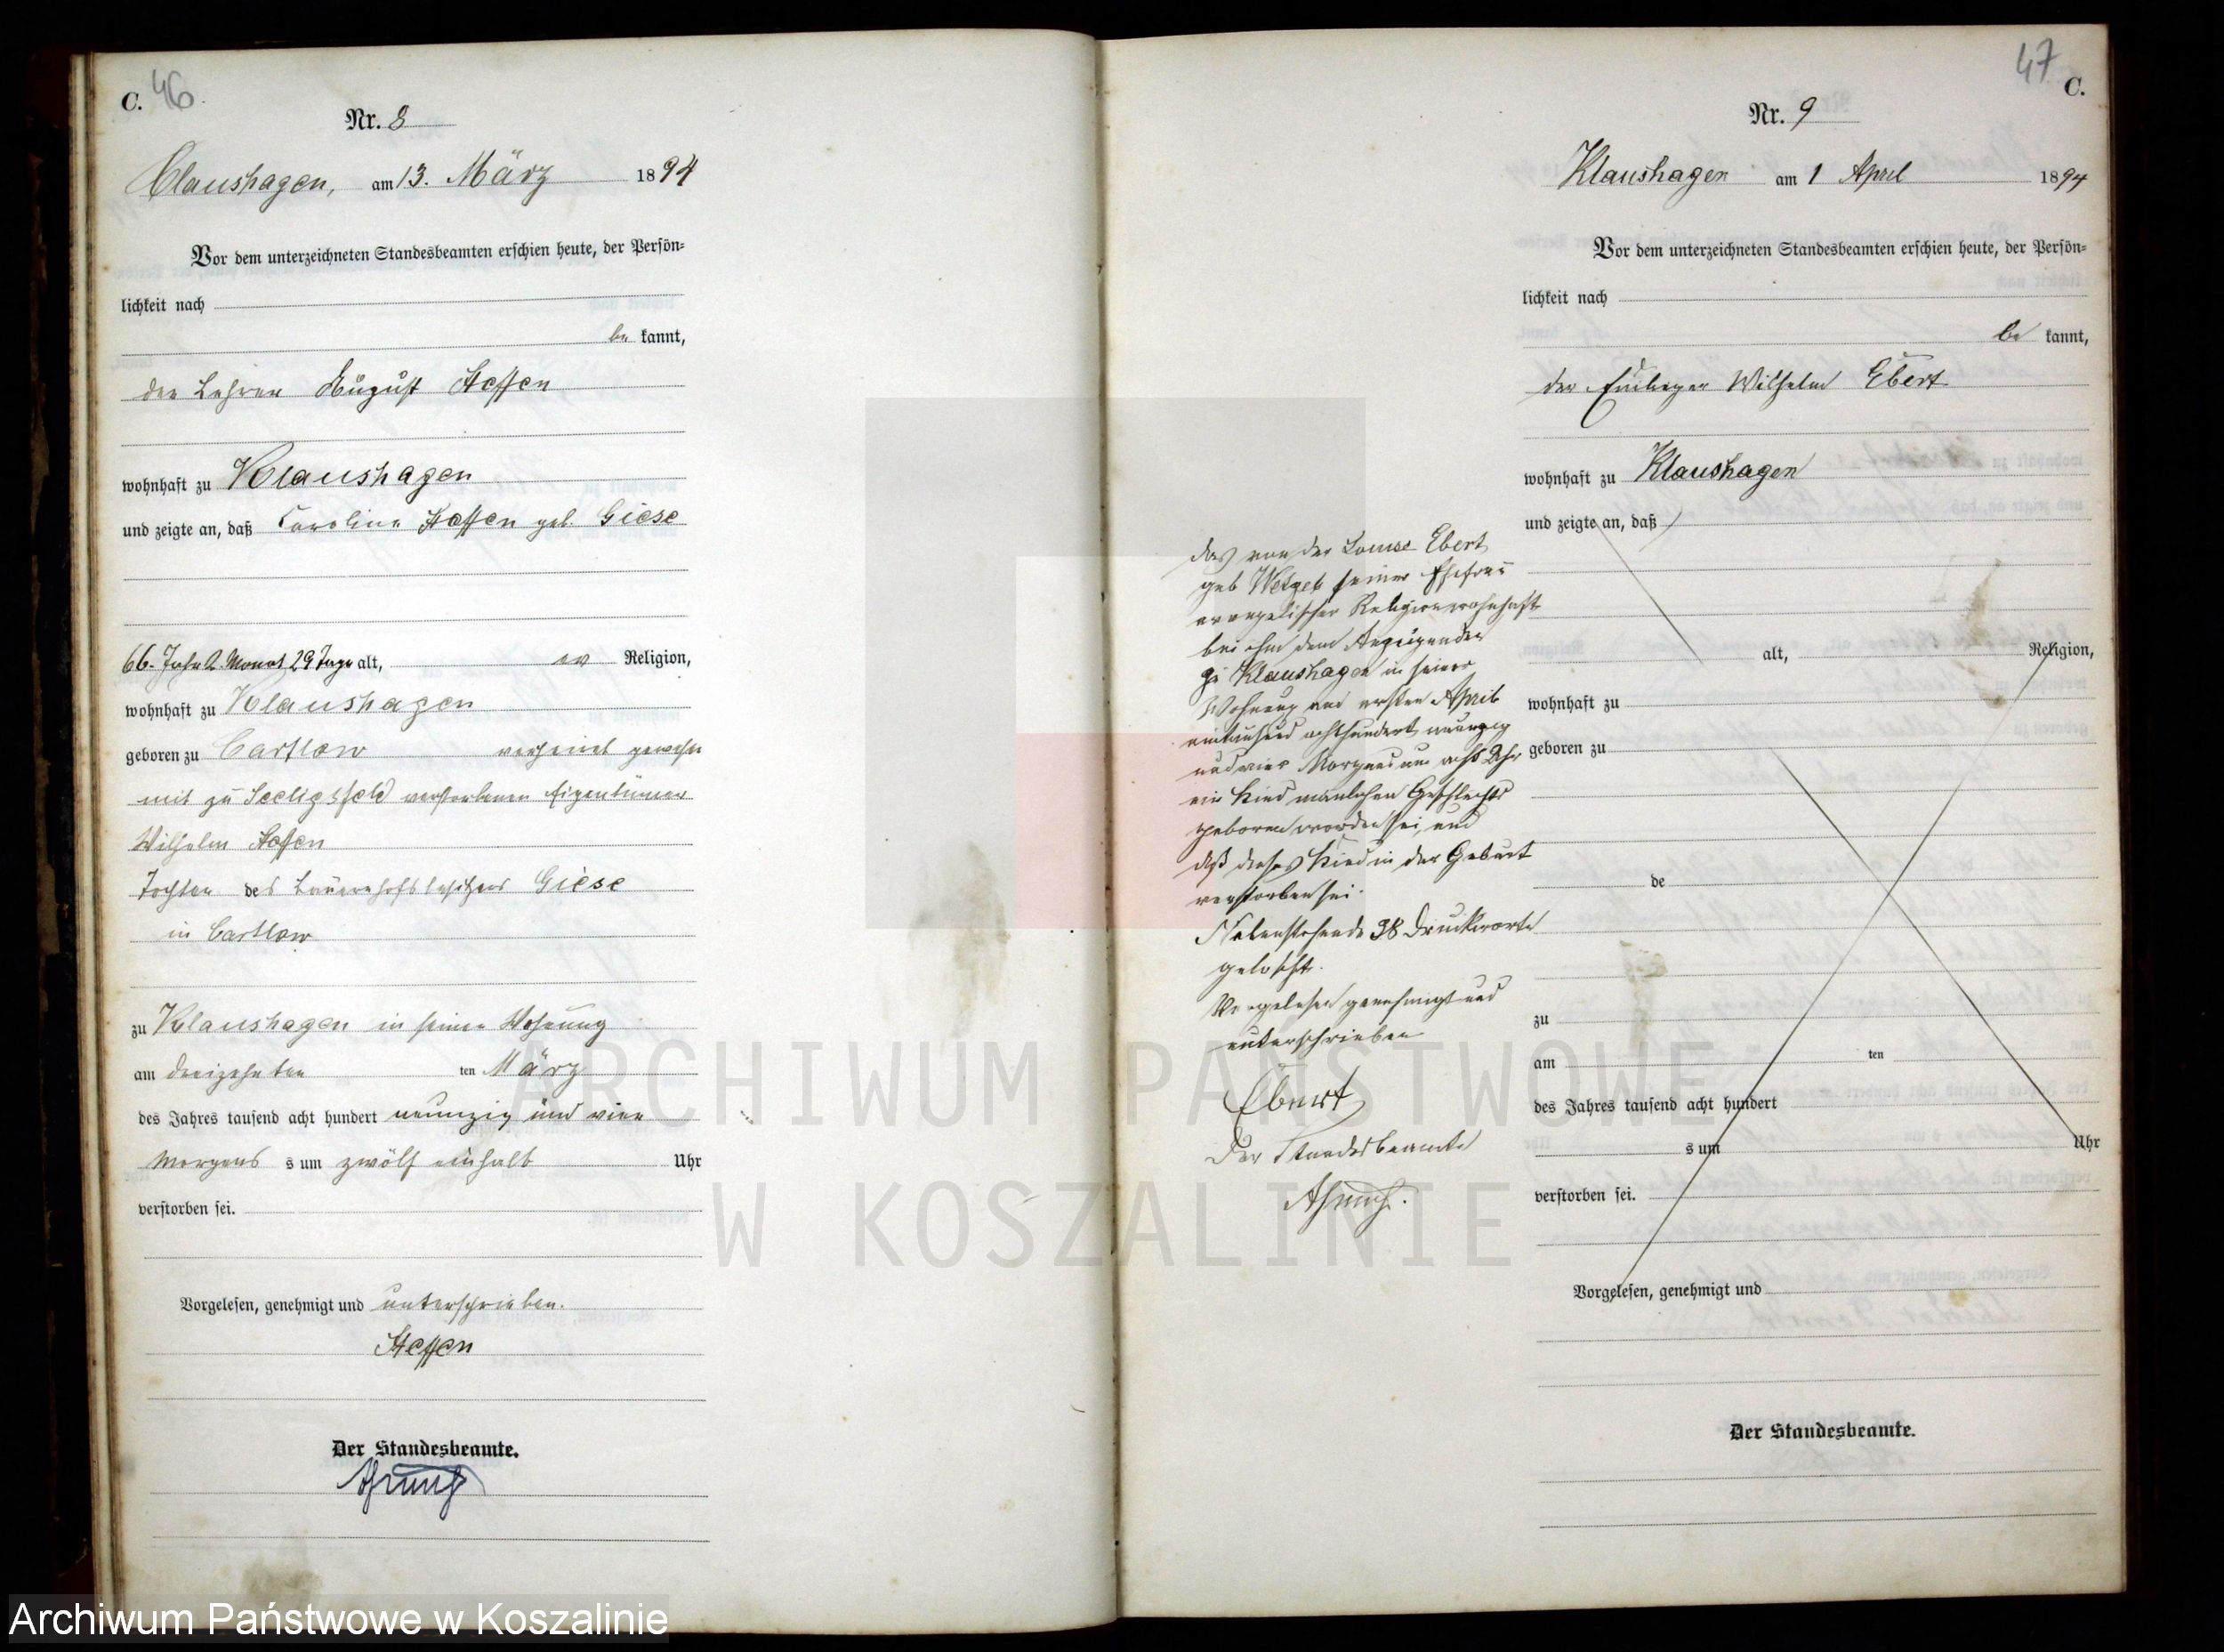 C. 46
Nr. 8
Claushagen, am 13. März 1894
Vor dem unterzeichneten Standesbeamten erschien heute, der Persön-
lichkeit nach
be kannt,
der Lehrer August Steffen
wohnhaft zu Klaushagen
und zeigte an, daß Caroline Steffen geb. Giese
66. Jahr 2. Monat 29 Tage alt, ev Religion,
wohnhaft zu Klaushagen
geboren zu Cartlow verheirat gewesen
mit zu Seeligsfeld verstorbenen Eigentümer
Wilhelm Steffen
Tochter des Bauernhofsbesitzers Giese
in Cartlow
zu Klaushagen in seiner Wohnung
am dreizehnten ten März
des Jahres tausend acht hundert neunzig und vier
Morgens s um zwölf einhalb Uhr
verstorben sei.
Vorgelesen, genehmigt und unterschrieben.
Steffen
Der Standesbeamte.
47 C.
Nr. 9
Klaushagen am 1 April 1894
Vor dem unterzeichneten Standesbeamten erschien heute, der Persön-
lichkeit nach
be kannt,
der Wilhelm Ebert
wohnhaft zu Klaushagen
und zeigte an, daß
alt, Religion,
wohnhaft zu
geboren zu
de
zu
am ten
des Jahres tausend acht hundert
s um Uhr
verstorben sei.
Vorgelesen, genehmigt und
Der Standesbeamte.
das von der Louise Ebert
geb seiner Ehefrau
evangelischer Religion wohnhaft
bei ihm dem Anzeigenden
zu Klaushagen in seiner
Wohnung am ersten April
eintausend achthundert neunzig
und vier Morgens um acht Uhr
ein Kind männlichen Geschlechts
geboren worden sei, und
daß dieses Kind in der Geburt
verstorben sei.
Nebenstehende 38 Druckworte
gelöscht.
Vorgelesen genehmigt und
unterschrieben
Ebert
Der Standesbeamte
ARCHIWUM PAŃSTWOWE
W KOSZALINIE
Archiwum Państwowe w Koszalinie